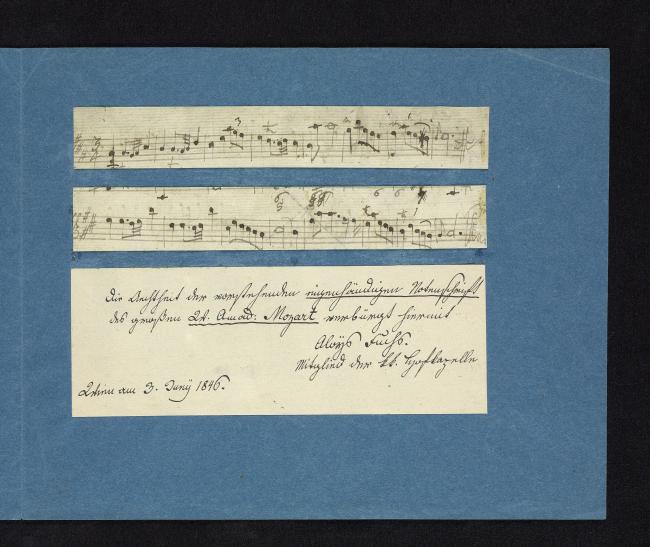 Die Aechtheit der vorstehenden eigenhändigen Notenschrift
des großen W. Amad: Mozart verbürgt hiermit
Aloys Fuchs.
Mitglied der kk. Hofkapelle
Wien am 3. Juny 1846.